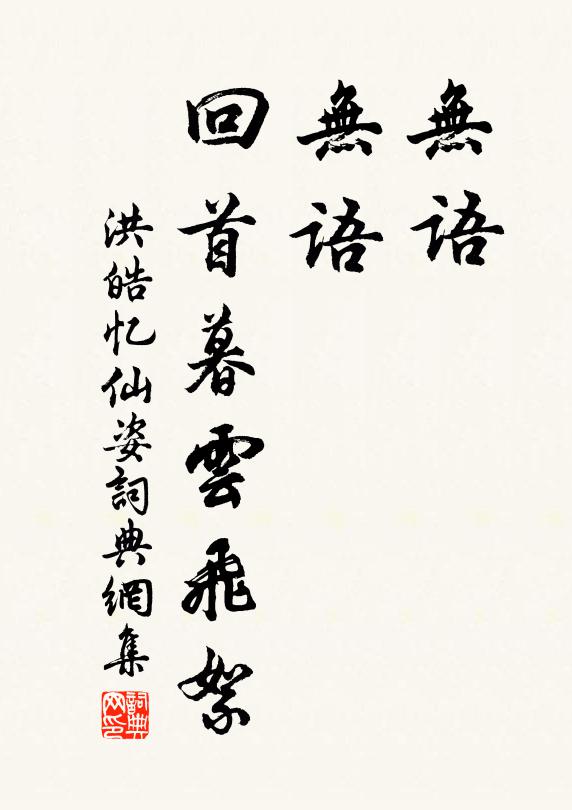 無語
無語
回首暮雲飛絮
洪皓忆仙姿詞典網集
詞典网印